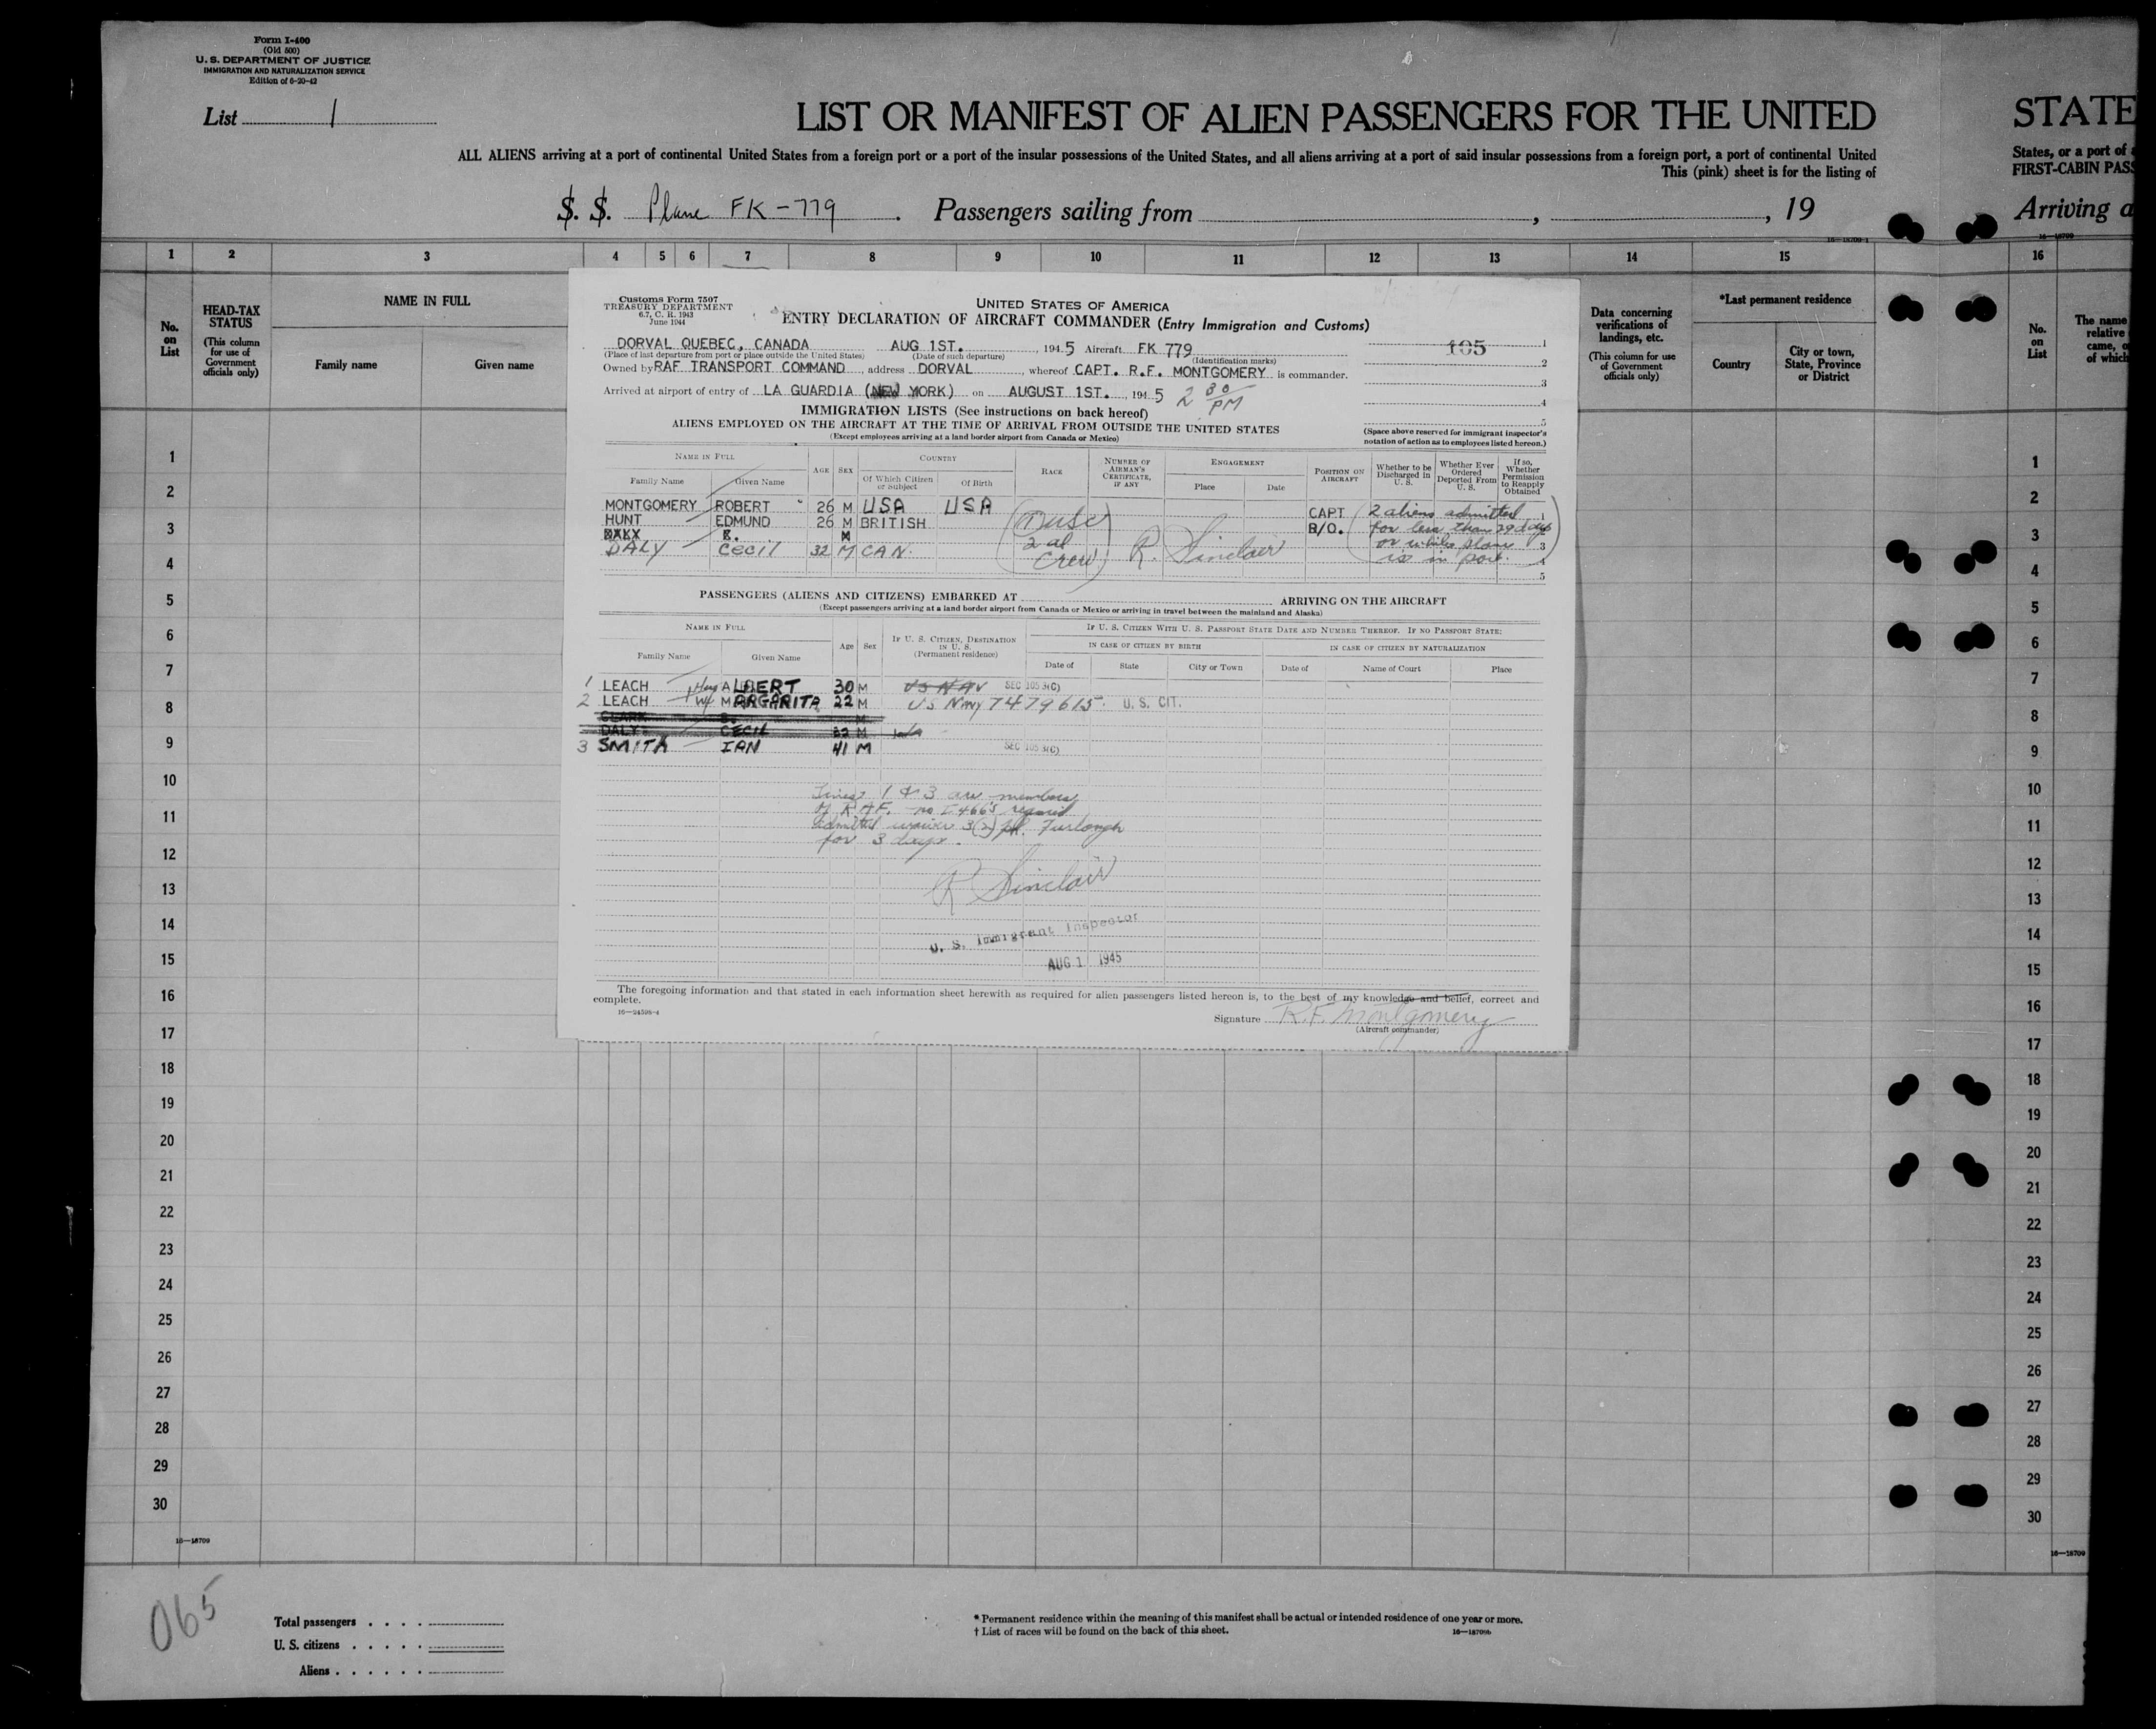 Form I-400
(Old 500)
U. S. DEPARTMENT OF JUSTICE
IMMIGRATION AND NATURALIZATION SERVICE
Edition of 6-20-42
List 1
LIST OR MANIFEST OF ALIEN PASSENGERS FOR THE UNITED
STATE
ALL ALIENS arriving at a port of continental United States from a foreign port or a port of the insular possessions of the United States, and all aliens arriving at a port of said insular possessions from a foreign port, a port of continental United
States, or a port of
This (pink) sheet is for the listing of
FIRST-CABIN PASS
S. S. Plane FK-779 . Passengers sailing from , , 19
Arriving a
16—18709-1
16—18709
1 2 3 4 5 6 7 8 9 10 11 12 13 14 15 16
No. on List
HEAD-TAX STATUS
(This column for use of Government officials only)
NAME IN FULL
Family name Given name
Data concerning verifications of landings, etc.
(This column for use of Government officials only)
*Last permanent residence
Country
City or town, State, Province or District
No. on List
The name
relative
came, o
of which
Customs Form 7507
TREASURY DEPARTMENT
6.7, C. R. 1943
June 1944
UNITED STATES OF AMERICA
ENTRY DECLARATION OF AIRCRAFT COMMANDER (Entry Immigration and Customs)
DORVAL QUEBEC, CANADA AUG 1ST. , 1945 Aircraft FK 779
(Place of last departure from port or place outside the United States) (Date of such departure) (Identification marks)
105
Owned by RAF TRANSPORT COMMAND , address DORVAL , whereof CAPT. R.F. MONTGOMERY is commander.
Arrived at airport of entry of LA GUARDIA (NEW YORK) on AUGUST 1ST. , 1945 2 30 PM
1
2
3
4
5
IMMIGRATION LISTS (See instructions on back hereof)
ALIENS EMPLOYED ON THE AIRCRAFT AT THE TIME OF ARRIVAL FROM OUTSIDE THE UNITED STATES
(Except employees arriving at a land border airport from Canada or Mexico)
(Space above reserved for immigrant inspector's notation of action as to employees listed hereon.)
NAME IN FULL
Family Name Given Name
AGE SEX
COUNTRY
Of Which Citizen or Subject Of Birth
RACE
NUMBER OF AIRMAN'S CERTIFICATE, IF ANY
ENGAGEMENT
Place Date
POSITION ON AIRCRAFT
Whether to be Discharged in U. S.
Whether Ever Ordered Deported From U. S.
If so, Whether Permission to Reapply Obtained
MONTGOMERY ROBERT 26 M USA USA CAPT 2 aliens admitted 1
HUNT EDMUND 26 M BRITISH B/O. for less than 29 days
E. M
DALY Cecil 32 M CAN. 2 al Crew R. Sinclair or while plane is in port. 3
4
5
PASSENGERS (ALIENS AND CITIZENS) EMBARKED AT ARRIVING ON THE AIRCRAFT
(Except passengers arriving at a land border airport from Canada or Mexico or arriving in travel between the mainland and Alaska)
NAME IN FULL
Family Name Given Name
Age Sex
IF U. S. CITIZEN, DESTINATION IN U. S.
(Permanent residence)
IF U. S. CITIZEN WITH U. S. PASSPORT STATE DATE AND NUMBER THEREOF. IF NO PASSPORT STATE:
IN CASE OF CITIZEN BY BIRTH IN CASE OF CITIZEN BY NATURALIZATION
Date of State City or Town Date of Name of Court Place
1 LEACH ALBERT 30 M US NAV SEC 105 3(C)
2 LEACH Wf MARGARITA 22 M US Navy 7479615 U. S. CIT.
CLARK M
DALY CECIL 32 M
3 SMITH IAN 41 M SEC 105 3(C)
Lines 1 & 3 are members
of R.A.F. no I-466's required
admitted waiver 3(2) Furlough
for 3 days.
R Sinclair
U. S. Immigrant Inspector
AUG 1 1945
The foregoing information and that stated in each information sheet herewith as required for alien passengers listed hereon is, to the best of my knowledge and belief, correct and
complete.
16—24598-4
Signature R.F. Montgomery
(Aircraft commander)
1 1
2 2
3 3
4 4
5 5
6 6
7 7
8 8
9 9
10 10
11 11
12 12
13 13
14 14
15 15
16 16
17 17
18 18
19 19
20 20
21 21
22 22
23 23
24 24
25 25
26 26
27 27
28 28
29 29
30 30
16—18709
16—18709
065
Total passengers . . . .
U. S. citizens . . . . .
Aliens . . . . . .
* Permanent residence within the meaning of this manifest shall be actual or intended residence of one year or more.
† List of races will be found on the back of this sheet.
16—18709b